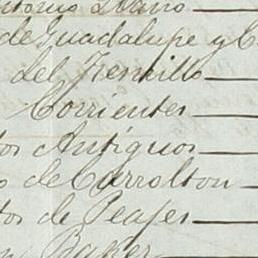 de Guadalupe y C
del Fresnillo
Corrientes
os Antiguos
o de Carrolton
tos de Peajes
Baker